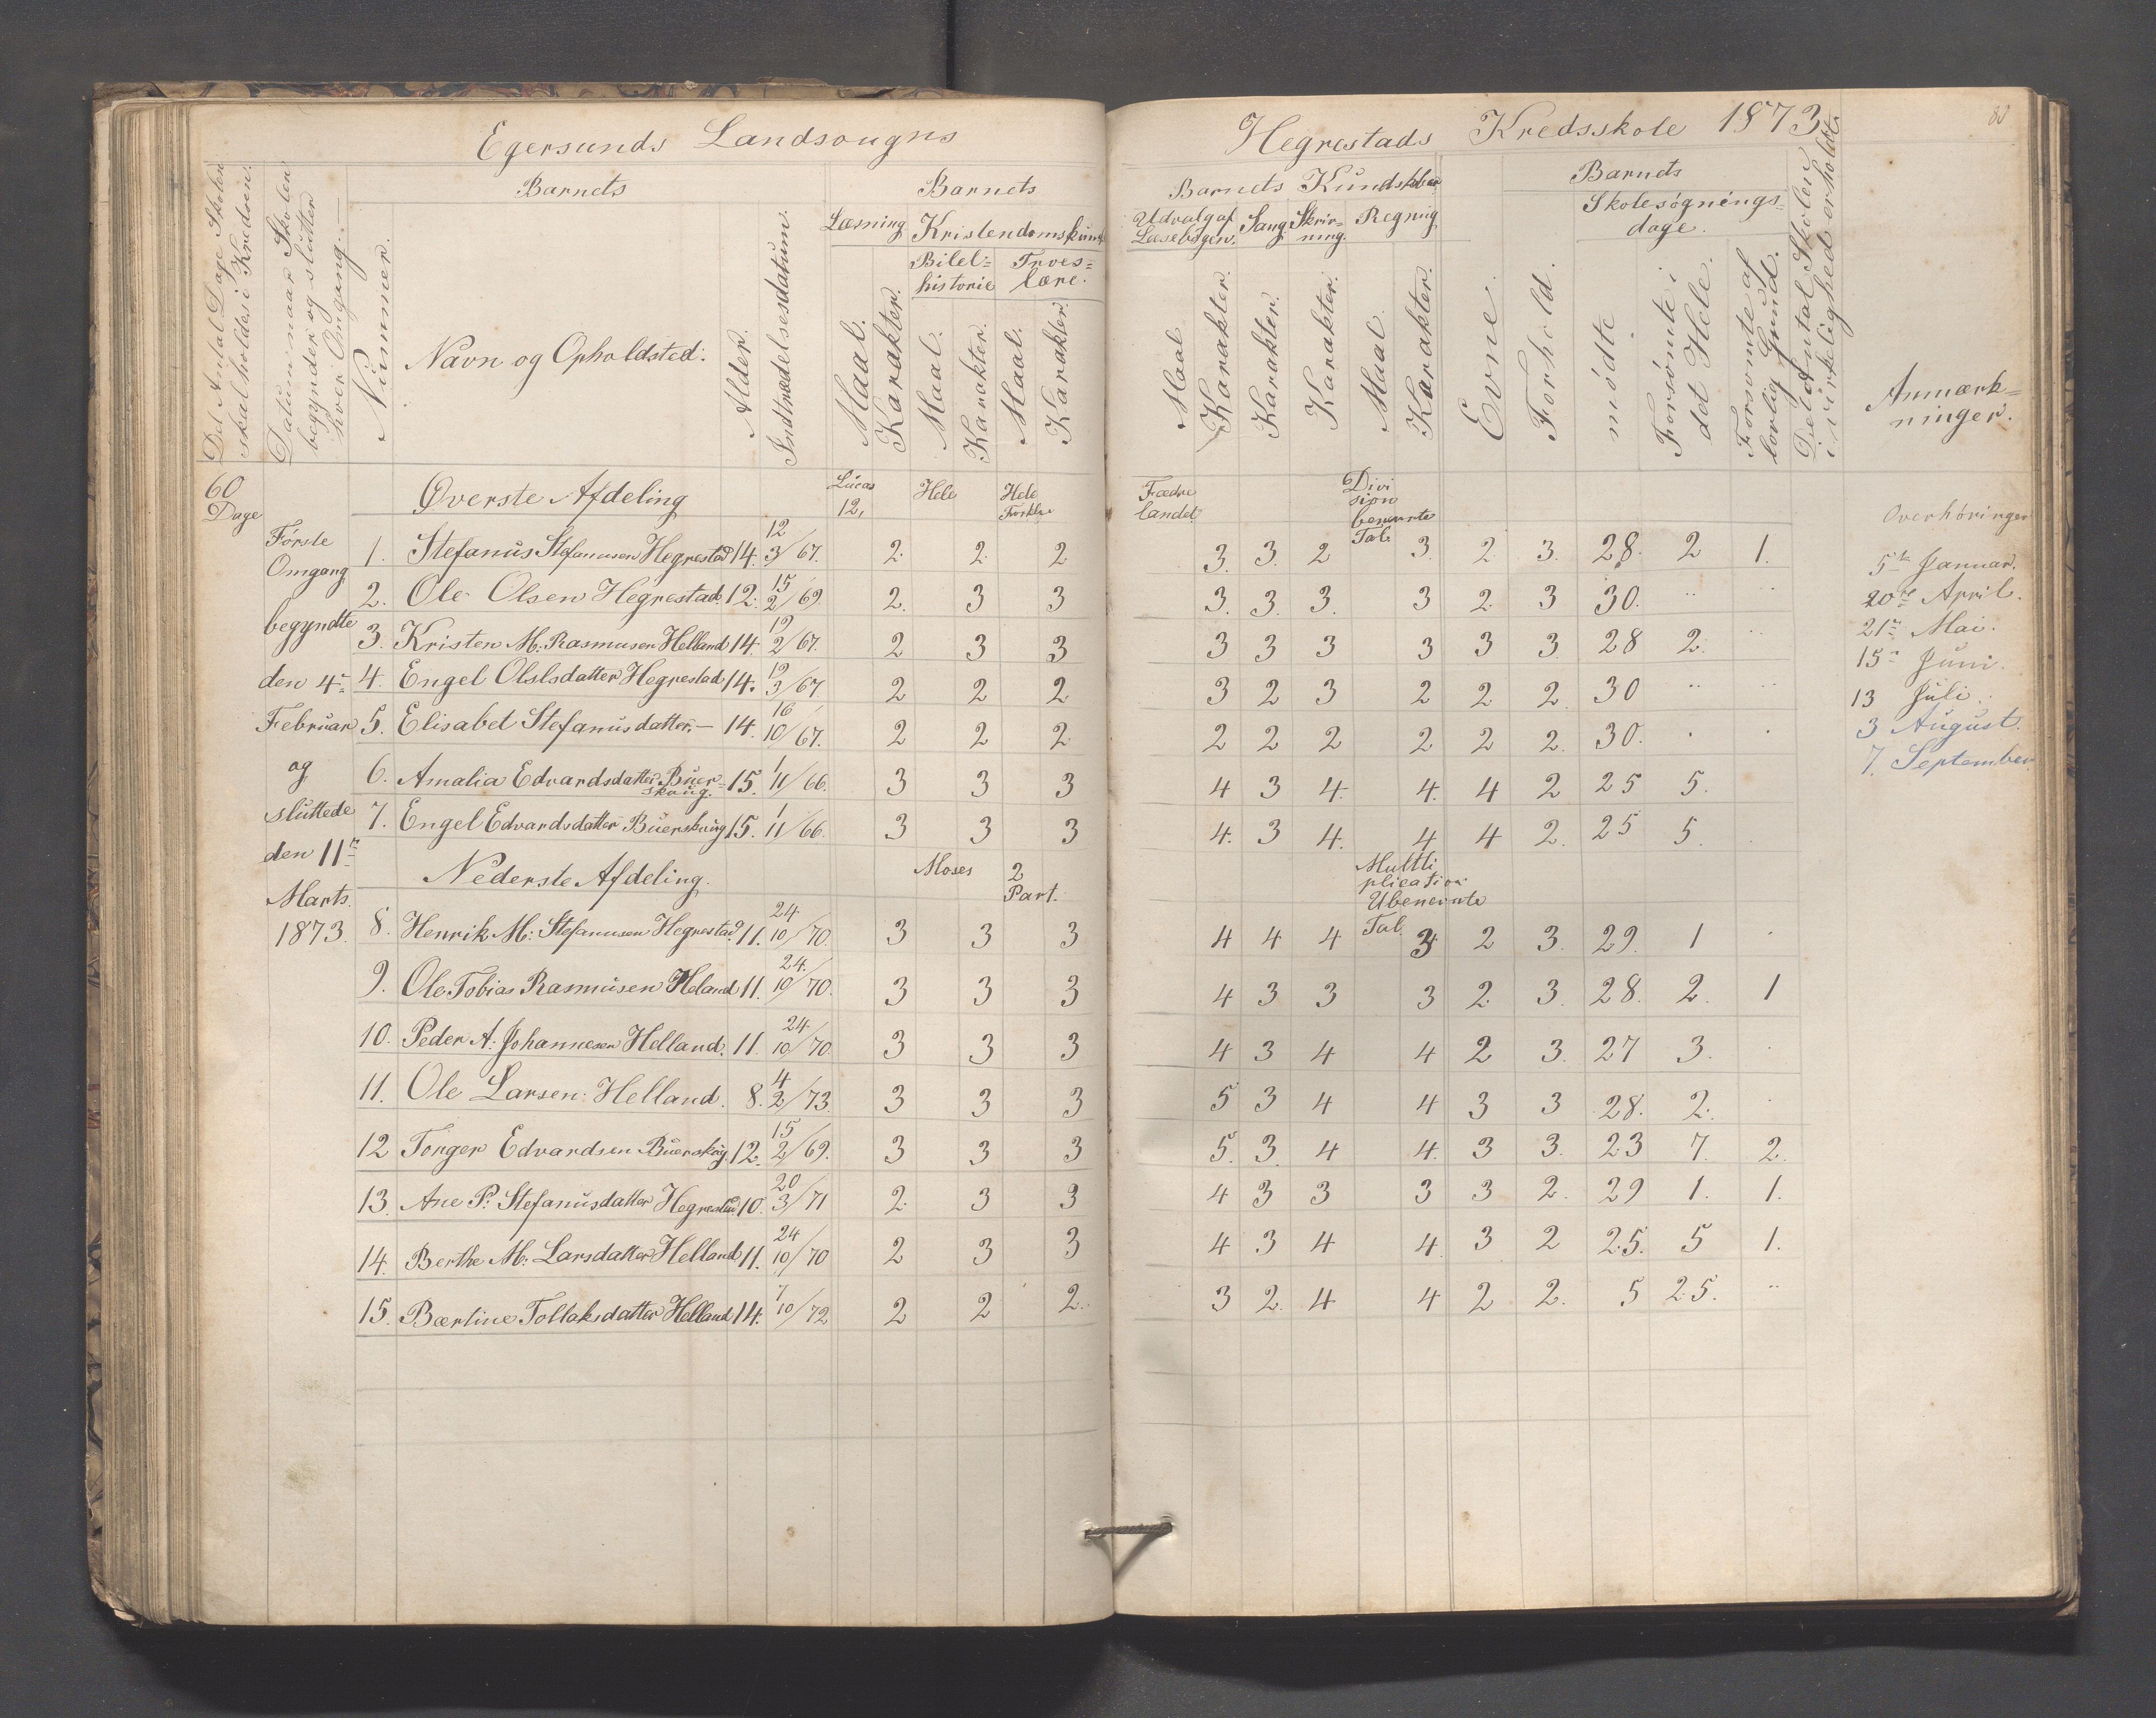 Egersunds Landsougns
Hegrestads Kredsskole 1873
Det Antal Dage Skolen skal holdes i Kredsen.
Datum naar Skolen begynder og slutter hver Omgang.
Nummer.
Barnets
Navn og Opholdsted.
Alder.
Indtrædelsesdatum.
Barnets
Læsning
Maal. Karakter.
Kristendomskund
Bibel= historie
Maal. Karakter.
Troes= lære.
Maal. Karakter.
Barnets Kundskber
Udvalg af Læsebogen.
Maal Karakter.
Sang.
Karakter.
Skriv= ning.
Karakter.
Regning
Maal. Karakter.
Evne.
Forhold.
Barnets
Skolesøgnings= dage.
mødte
Forsømte i det Hele.
Forsømte af lovlig Grund.
Det Antal Skolen i virkelighed erholdt.
Anmærk= ninger.
60 Dage
Første
Omgang
begyndte
den 4=
Februar
og
sluttede
den 11=
Marts.
1873.
Øverste Afdeling Lucas 12, Hele Hele Forklr Fædre landet Divi sion benevnte Tal.
1. Stefanus Stefanusen Hegrestad 14. 12 3/67. 2. 2. 2 3. 3. 2 3. 2. 3. 28. 2 1.
2. Ole Olsen Hegrestad. 12. 15 2/69. 2. 3 3 3. 3. 3. 3 2 3 30. " "
3. Kristen M. Rasmusen Helland 14. 19 2/67. 2 3 3 3 3 3 3 3 3. 28 2. "
4. Engel Olslsdatter Hegrestad 14. 19 3/67 2 2 2 3 2 3 2 2 2. 30 " "
5. Elisabet Stefanusdatter.— 14. 16 10/67. 2 2 2 2 2 2 2 2 2. 30. . .
6. Amalia Edvardsdatter Buer= skoug. 15. 1 11/66. 3 3 3 4 3 4. 4. 4 2 25 5.
7. Engel Edvardsdatter Buerskoug 15. 1 11/66. 3 3 3 4. 3 4. 4 4 2. 25 5. .
Nederste Afdeling. Moses 2 Part. Multti plication Ubenevnte Tal.
8. Henrik M: Stefanusen Hegrestad 11. 24 10/70. 3 3 3 4 4 4 3 2 3. 29. 1 .
9. Ole Tobias Rasmusen Heland 11. 24. 10/70. 3 3 3 4 3 3 3 2. 3. 28. 2. 1
10. Peder A: Johannesen Helland. 11. 24 10/70. 3 3 3 4 3 4 4 2 3. 27 3. .
11. Ole Larsen: Helland. 8. 4 2/73. 3 3 3 5 3 4 4 3 3 28. 2. .
12 Tonger Edvardsen Buerskog 12. 15 2/69. 3 3 3 5. 3. 4 4. 3 3. 23 7. 2.
13. Ane P: Stefanusdatter Hegrestad 10. 20 3/71 2. 3 3 4 3 3 3 3 2. 29 1. 1.
14. Berthe M: Larsdatter Helland 11. 24 10/70 2 3 3 4 3 4 4. 3 2 25. 5 1.
15. Bærtine Tollaksdatter Helland 14. 7 10/72 2 2 2. 3 2. 4 4 2 2. 5 25. "
Overhøringer
5te Januar.
20de April.
21= Mai.
15= Juni.
13 Juli.
3 August.
7. September.